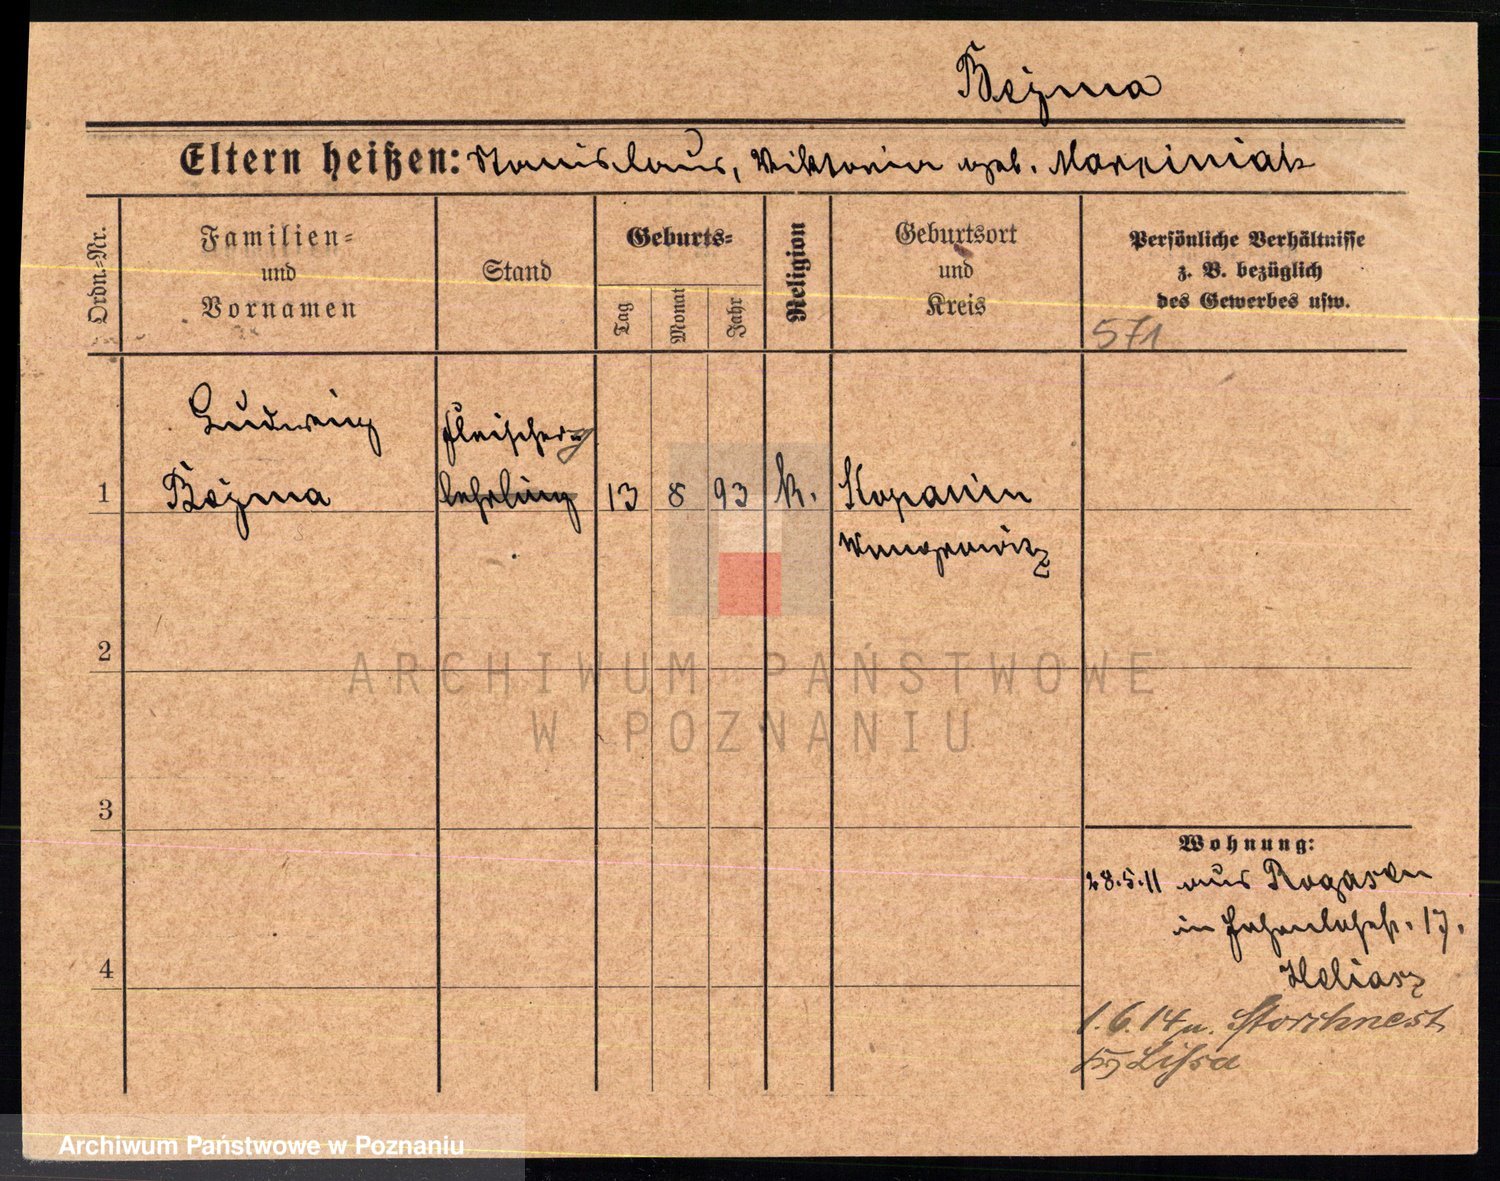 Bejma
Eltern heißen: Stanislaus, Viktoria geb. Marciniak
Ordn.-Nr.
Familien-
und
Vornamen
Stand
Geburts-
Tag
Monat
Jahr
Religion
Geburtsort
und
Kreis
Persönliche Verhältnisse
z. B. bezüglich
des Gewerbes usw.
571
Ludwig
Fleischer-
1 Bejma lehrling 13 8 93 k. Kopanin
Wongrowitz
2
3
4
Wohnung:
28.5.11 aus Rogasen
in 17.
Heliasz
1.6.14 n. Storchnest
Lissa
ARCHIWUM PAŃSTWOWE
W POZNANIU
Archiwum Państwowe w Poznaniu